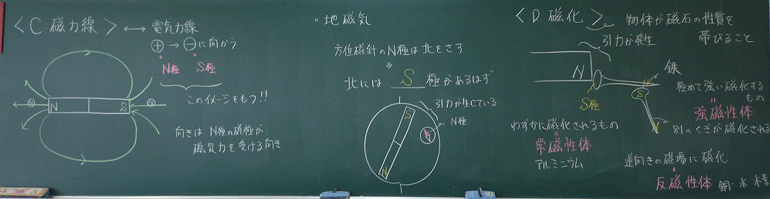 〈C 磁力線〉 ↔ 電気力線
⊕ → ⊖に向かう
N極 S極
このイメージをもつ!!
N S
向きは N極の磁極が
磁気力を受ける向き
・地磁気
方位磁針のN極は北をさす
北には S 極があるはず
引力が生じている
N極
S
N
〈D 磁化〉 物体が磁石の性質を
帯びること
引力が発生
N
S極
N
鉄
S
N
極めて強い磁化する
もの
強磁性体
別のくぎが磁化される
わずかに磁化されるもの
常磁性体
アルミニウム
逆向きの磁場に磁化
反磁性体 銅・水